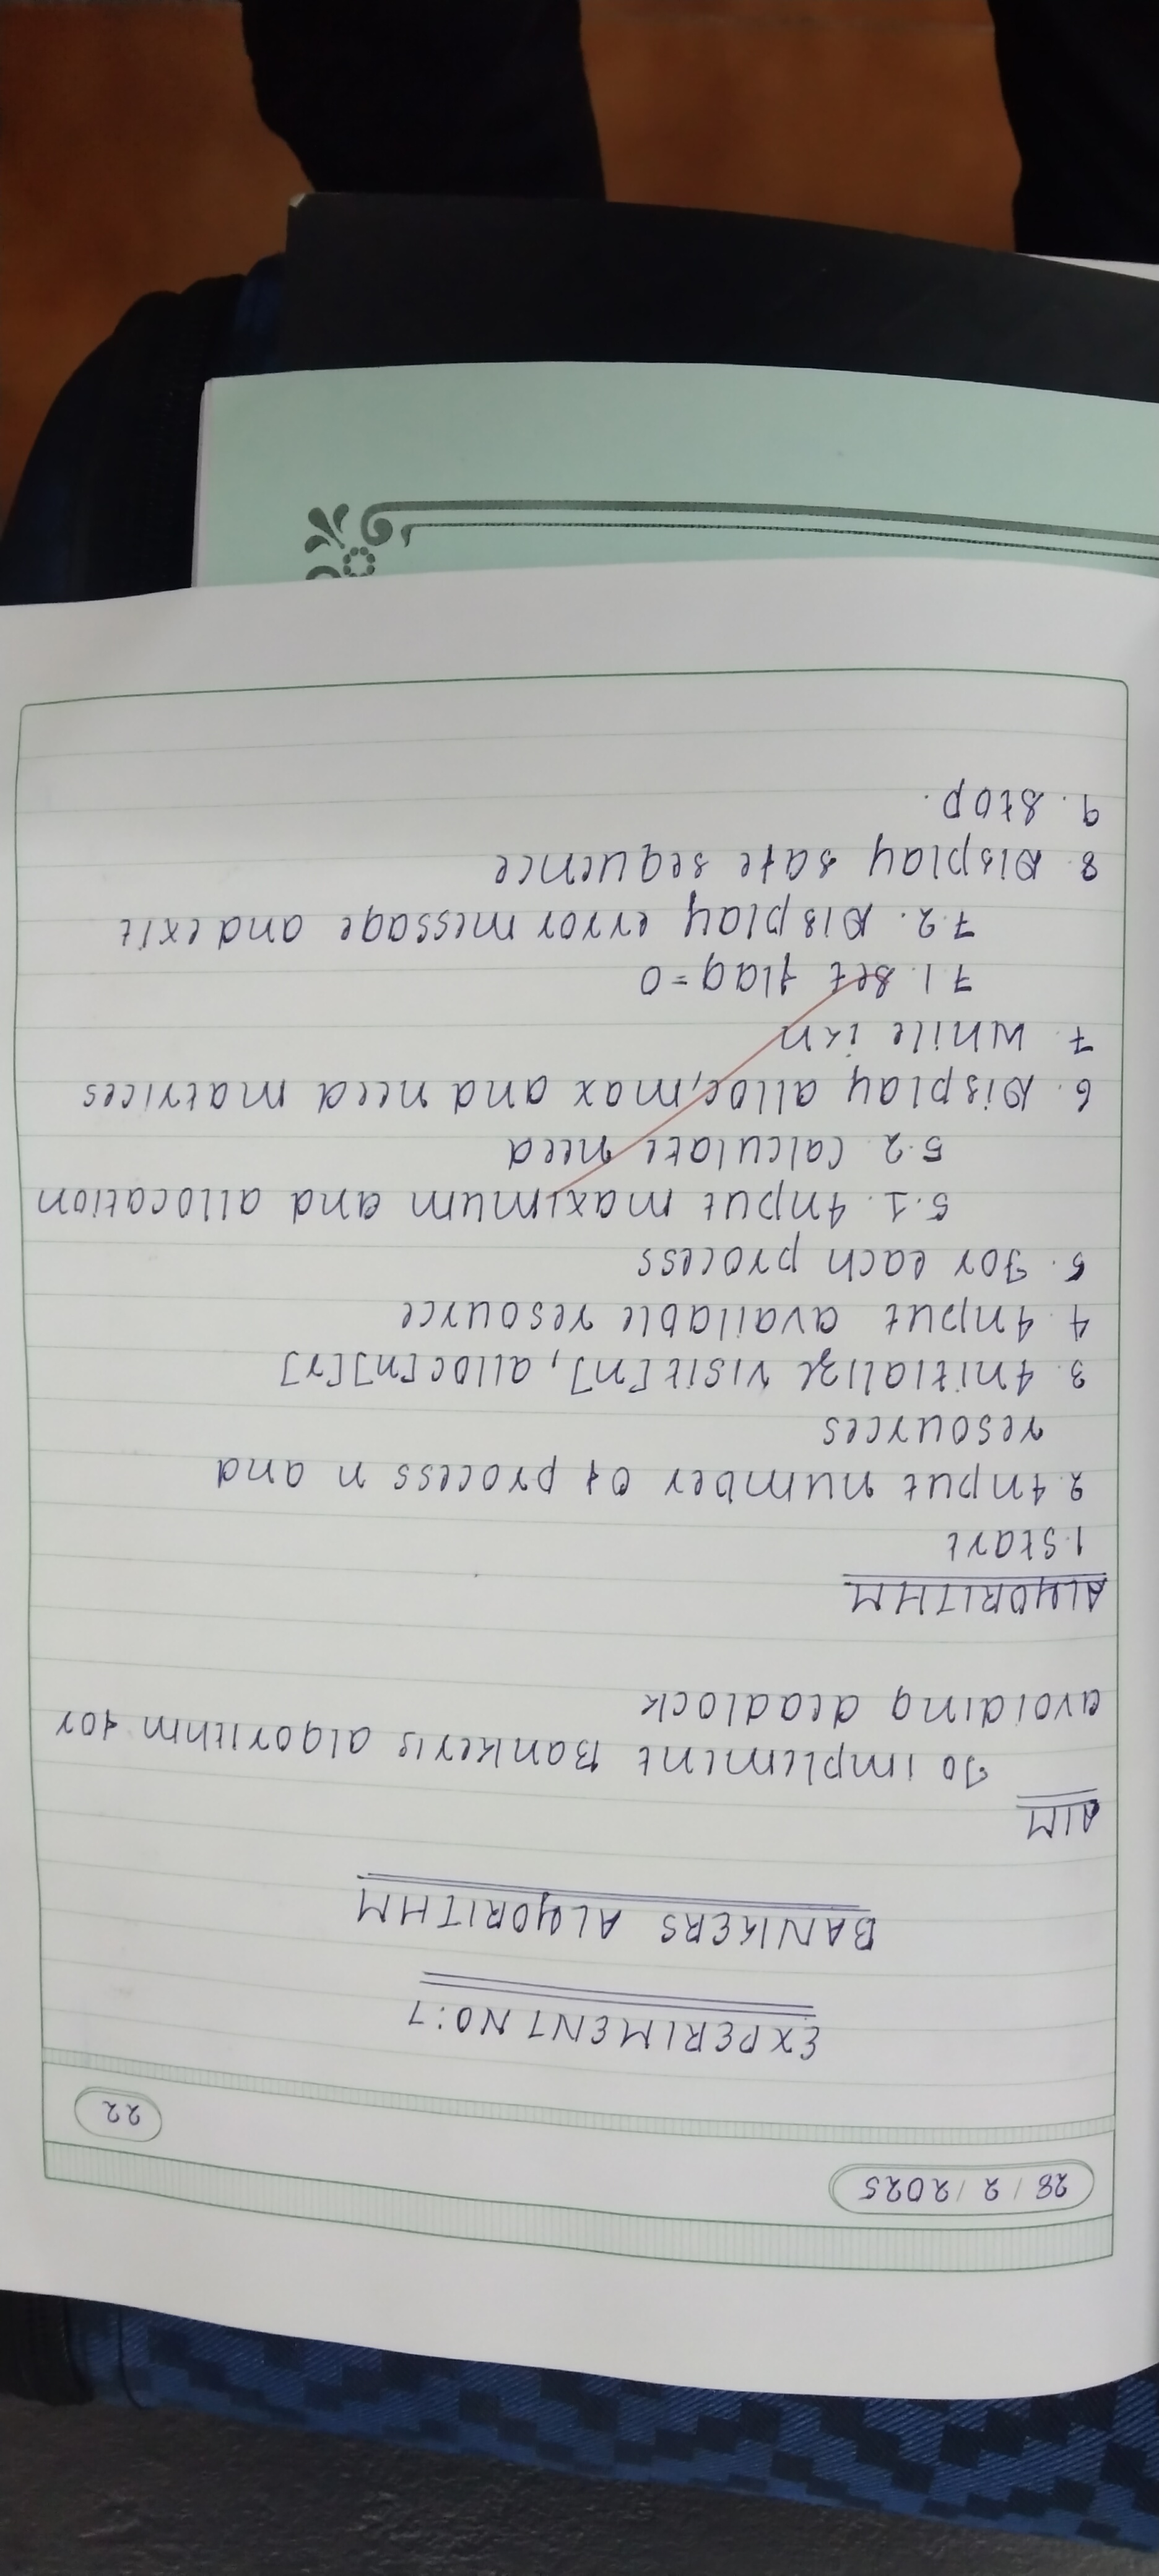 28/2/2025
22
EXPERIMENT NO:7
BANKERS ALGORITHM
AIM
To implement Banker's algorithm for
avoiding deadlock
ALGORITHM
1. Start
2. Input number of process n and
resources
3. Initialize visit[n], alloc[n][r]
4. Input available resource
5. For each process
5.1. Input maximum and allocation
5.2. Calculate need
6. Display alloc, max and need matrices
7. While i<n
7.1. Set flag=0
7.2. Display error message and exit
8. Display safe sequence
9. Stop.